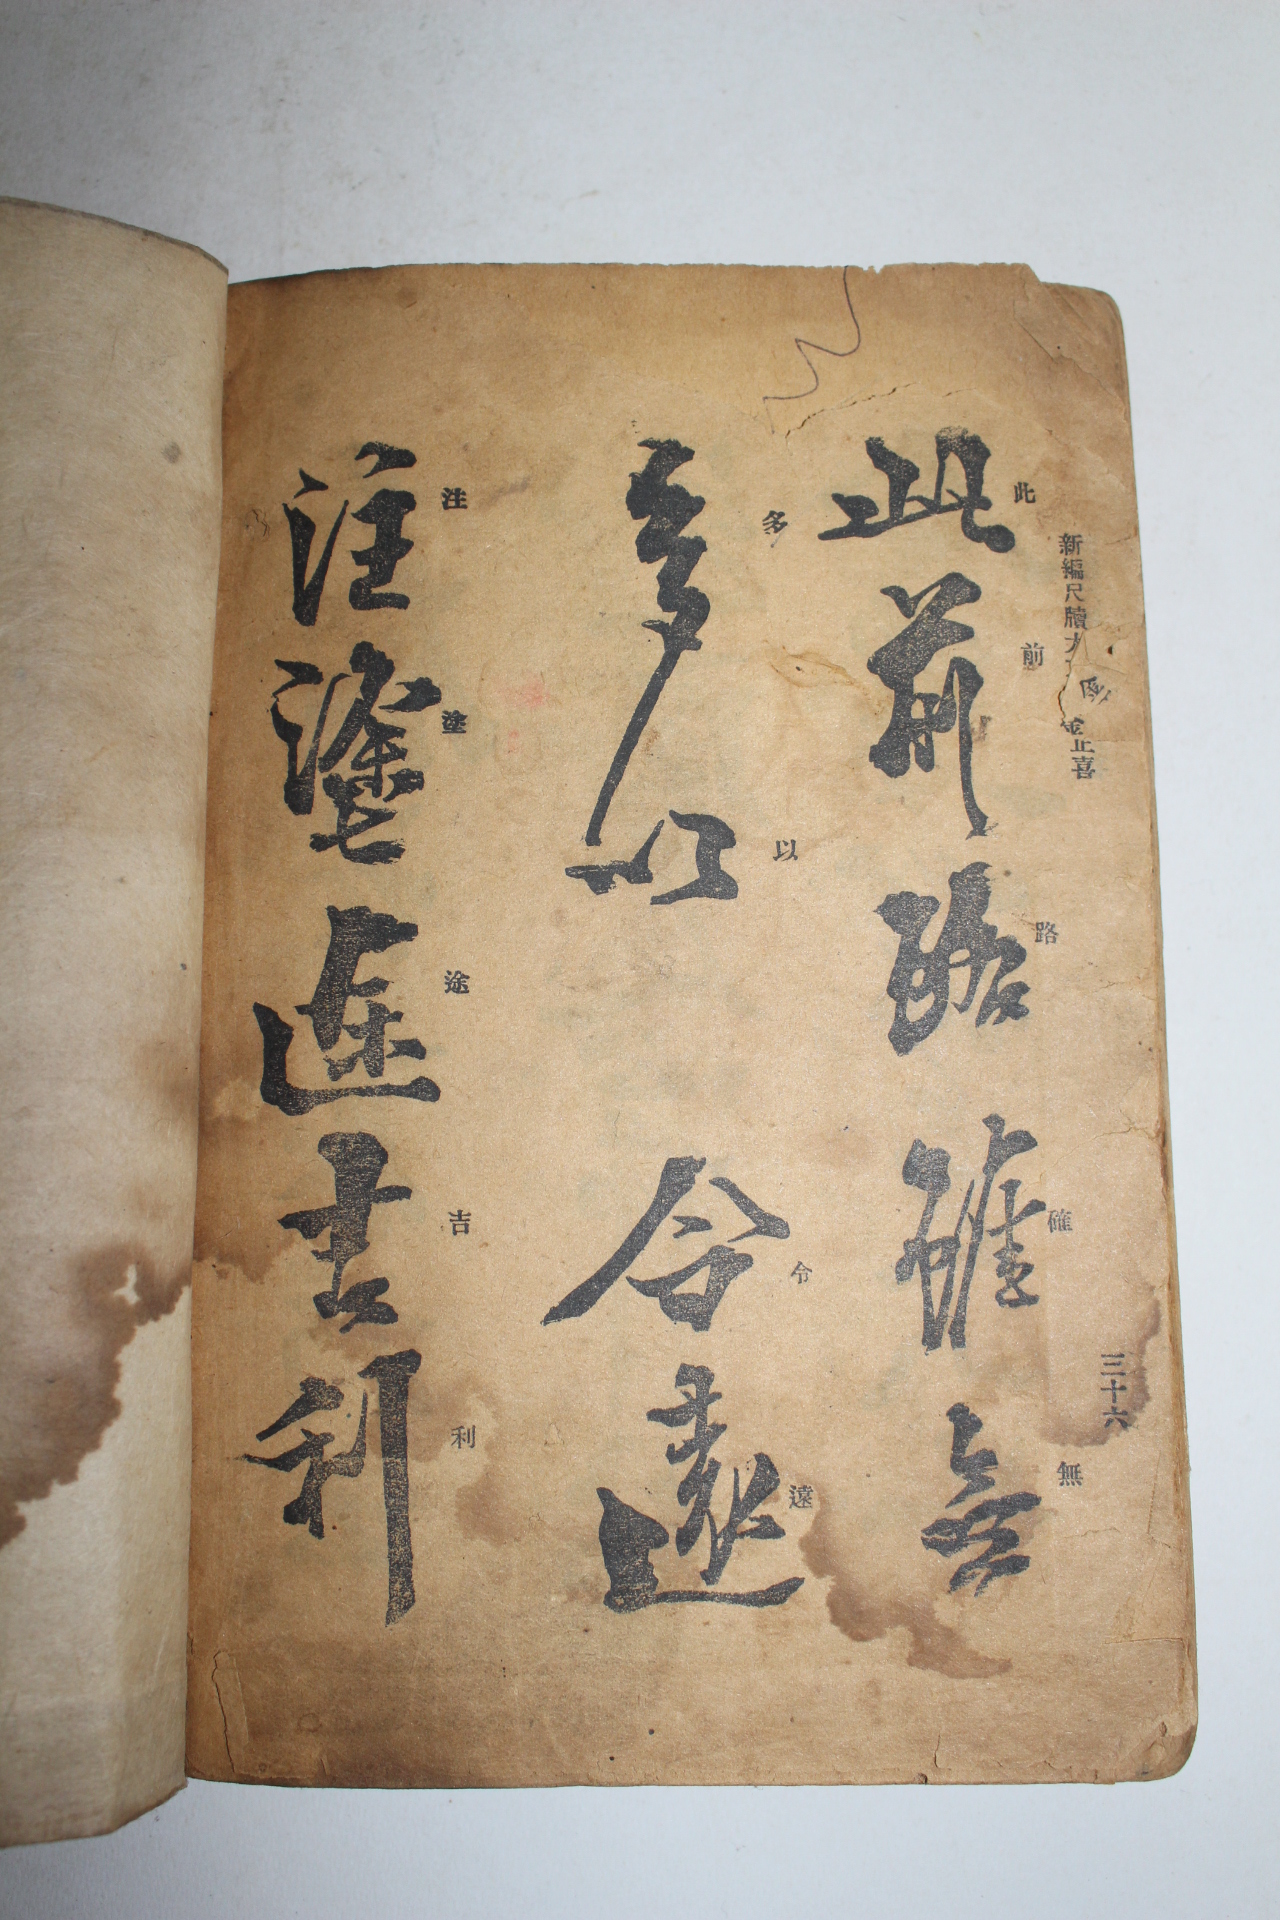 新編尺牘大
金正喜
三十六
此前路確無
此前路確無
多以令遠
多以令遠
注塗途吉利
注塗途吉利